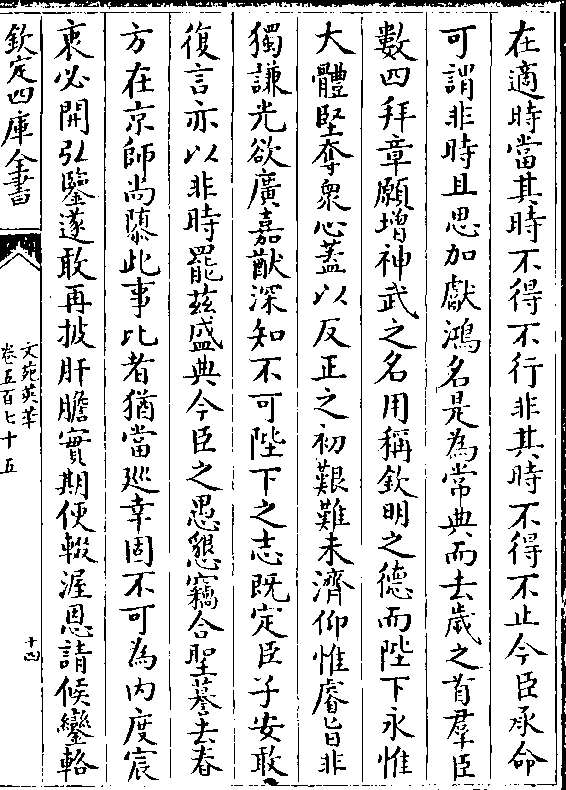 在適時當其時不得不行非其時不得不止今臣承命
可謂非時且思加獻鴻名是為常典而去歲之首羣臣
數四拜章願增神武之名用稱欽明之德而陛下永惟
大體堅奪衆心蓋以反正之初艱難未濟仰惟睿旨非
獨謙光欲廣嘉猷深知不可陛下之志既定臣子安敢
復言亦以非時罷茲盛典今臣之愚懇竊合聖謩去春
方在京師尚隳此事比者猶當廵幸固不可為内度宸
衷必開弘鑒遂敢再披肝膽實期便輟渥恩請候鑾輅
欽定四庫全書
文苑英華
卷五百七十五
十四